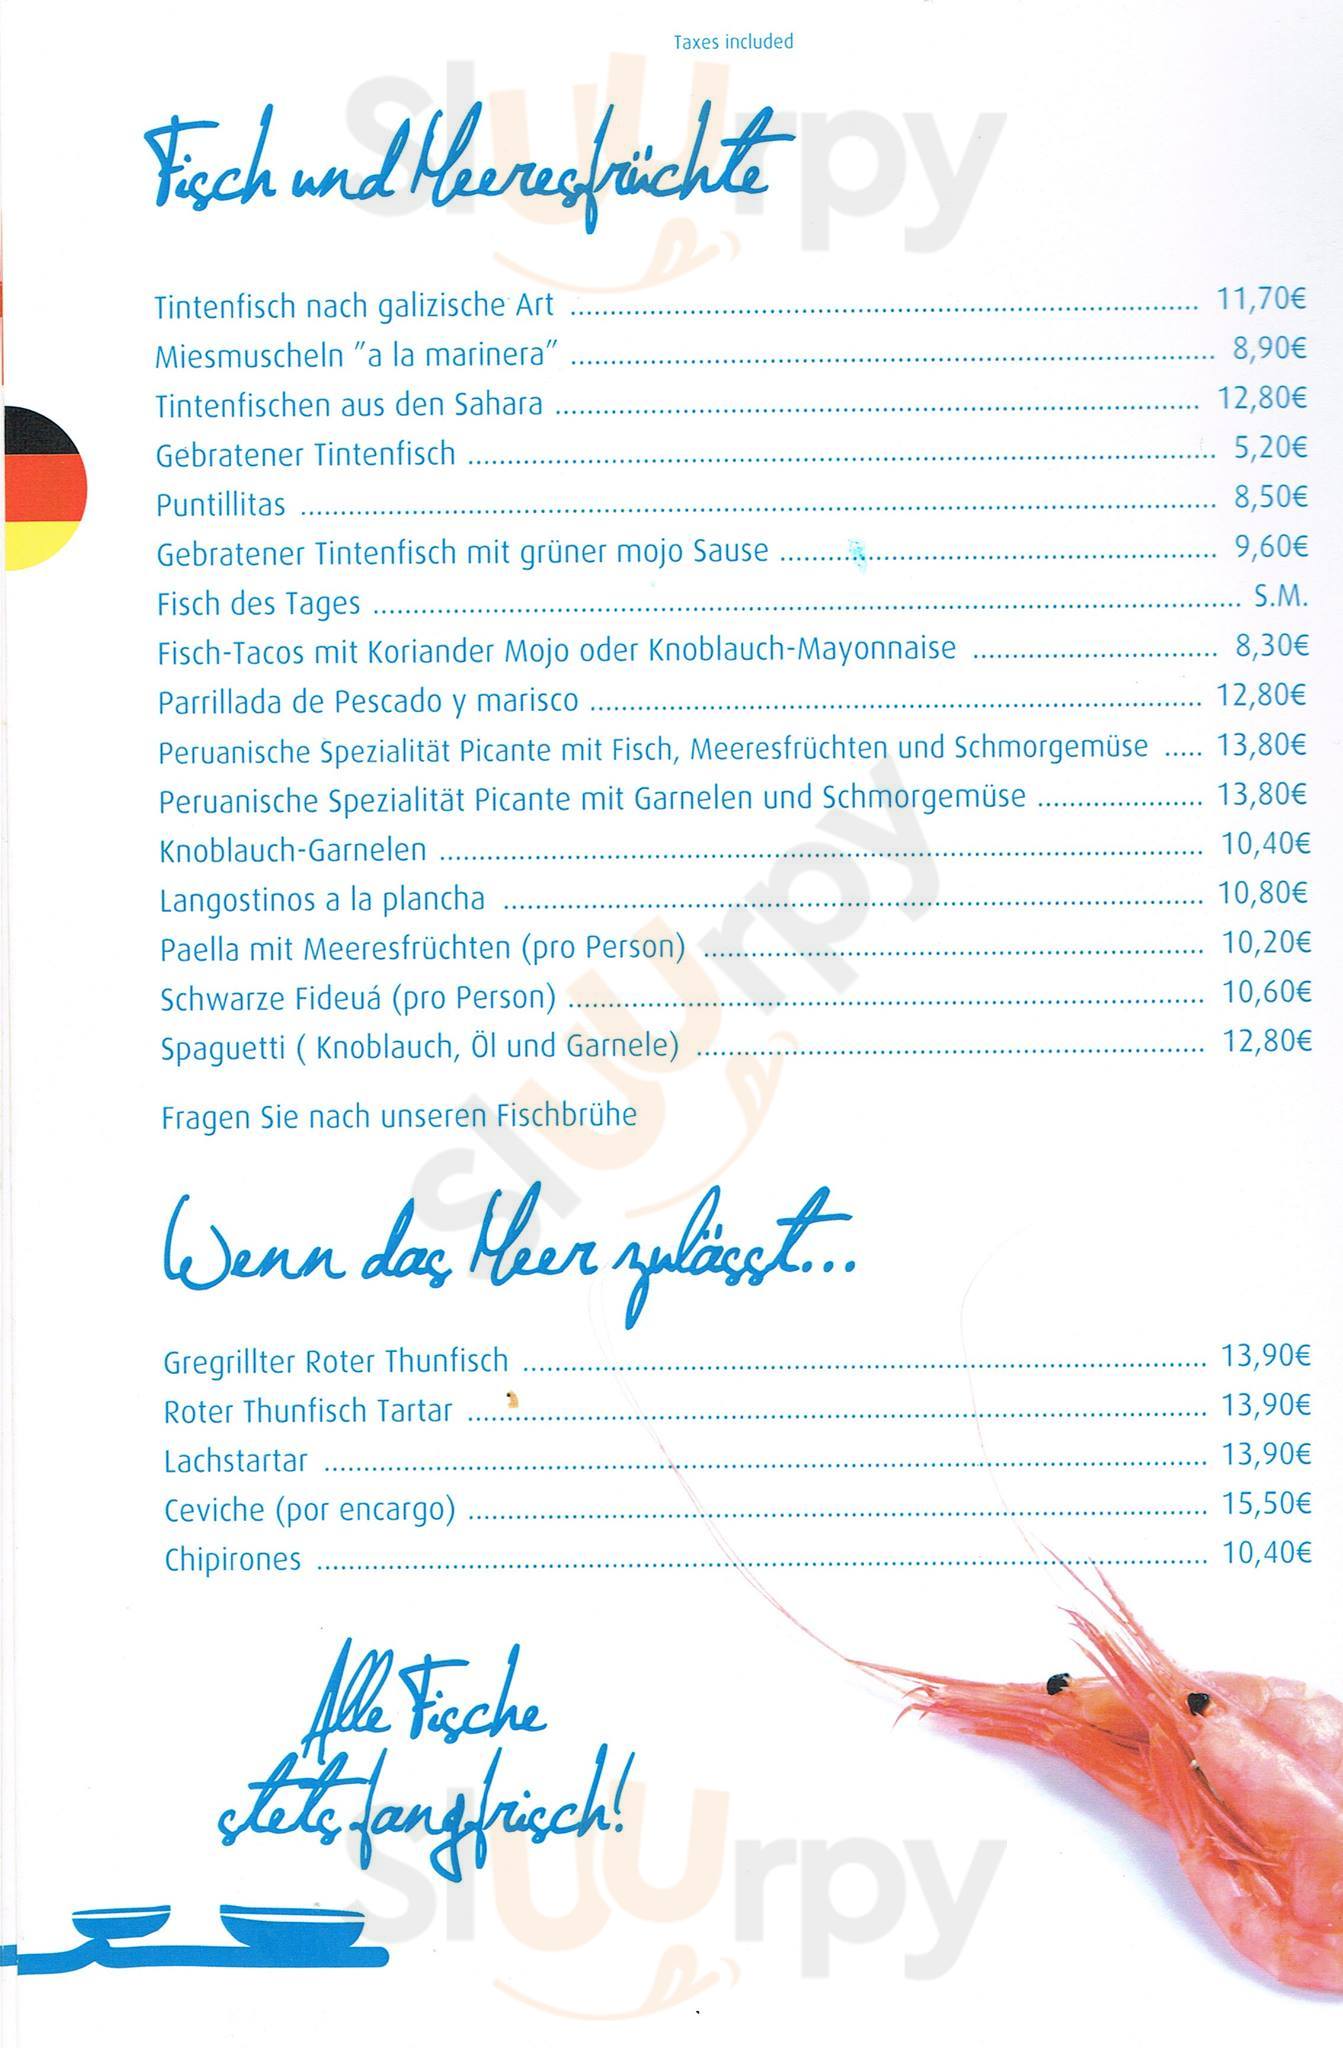 Taxes included
Fisch und Meeresfrüchte
Tintenfisch nach galizische Art ........ 11,70€
Miesmuscheln "a la marinera" ........ 8,90€
Tintenfischen aus den Sahara ........ 12,80€
Gebratener Tintenfisch ........ 5,20€
Puntillitas ........ 8,50€
Gebratener Tintenfisch mit grüner mojo Sause ........ 9,60€
Fisch des Tages ........ S.M.
Fisch-Tacos mit Koriander Mojo oder Knoblauch-Mayonnaise ........ 8,30€
Parrillada de Pescado y marisco ........ 12,80€
Peruanische Spezialität Picante mit Fisch, Meeresfrüchten und Schmorgemüse ..... 13,80€
Peruanische Spezialität Picante mit Garnelen und Schmorgemüse ........ 13,80€
Knoblauch-Garnelen ........ 10,40€
Langostinos a la plancha ........ 10,80€
Paella mit Meeresfrüchten (pro Person) ........ 10,20€
Schwarze Fideuá (pro Person) ........ 10,60€
Spaguetti ( Knoblauch, Öl und Garnele) ........ 12,80€
Fragen Sie nach unseren Fischbrühe
Wenn das Meer zulässt...
Gregrillter Roter Thunfisch ........ 13,90€
Roter Thunfisch Tartar ........ 13,90€
Lachstartar ........ 13,90€
Ceviche (por encargo) ........ 15,50€
Chipirones ........ 10,40€
Alle Fische
stets fangfrisch!
Sluurpy
Sluurpy
Sluurpy